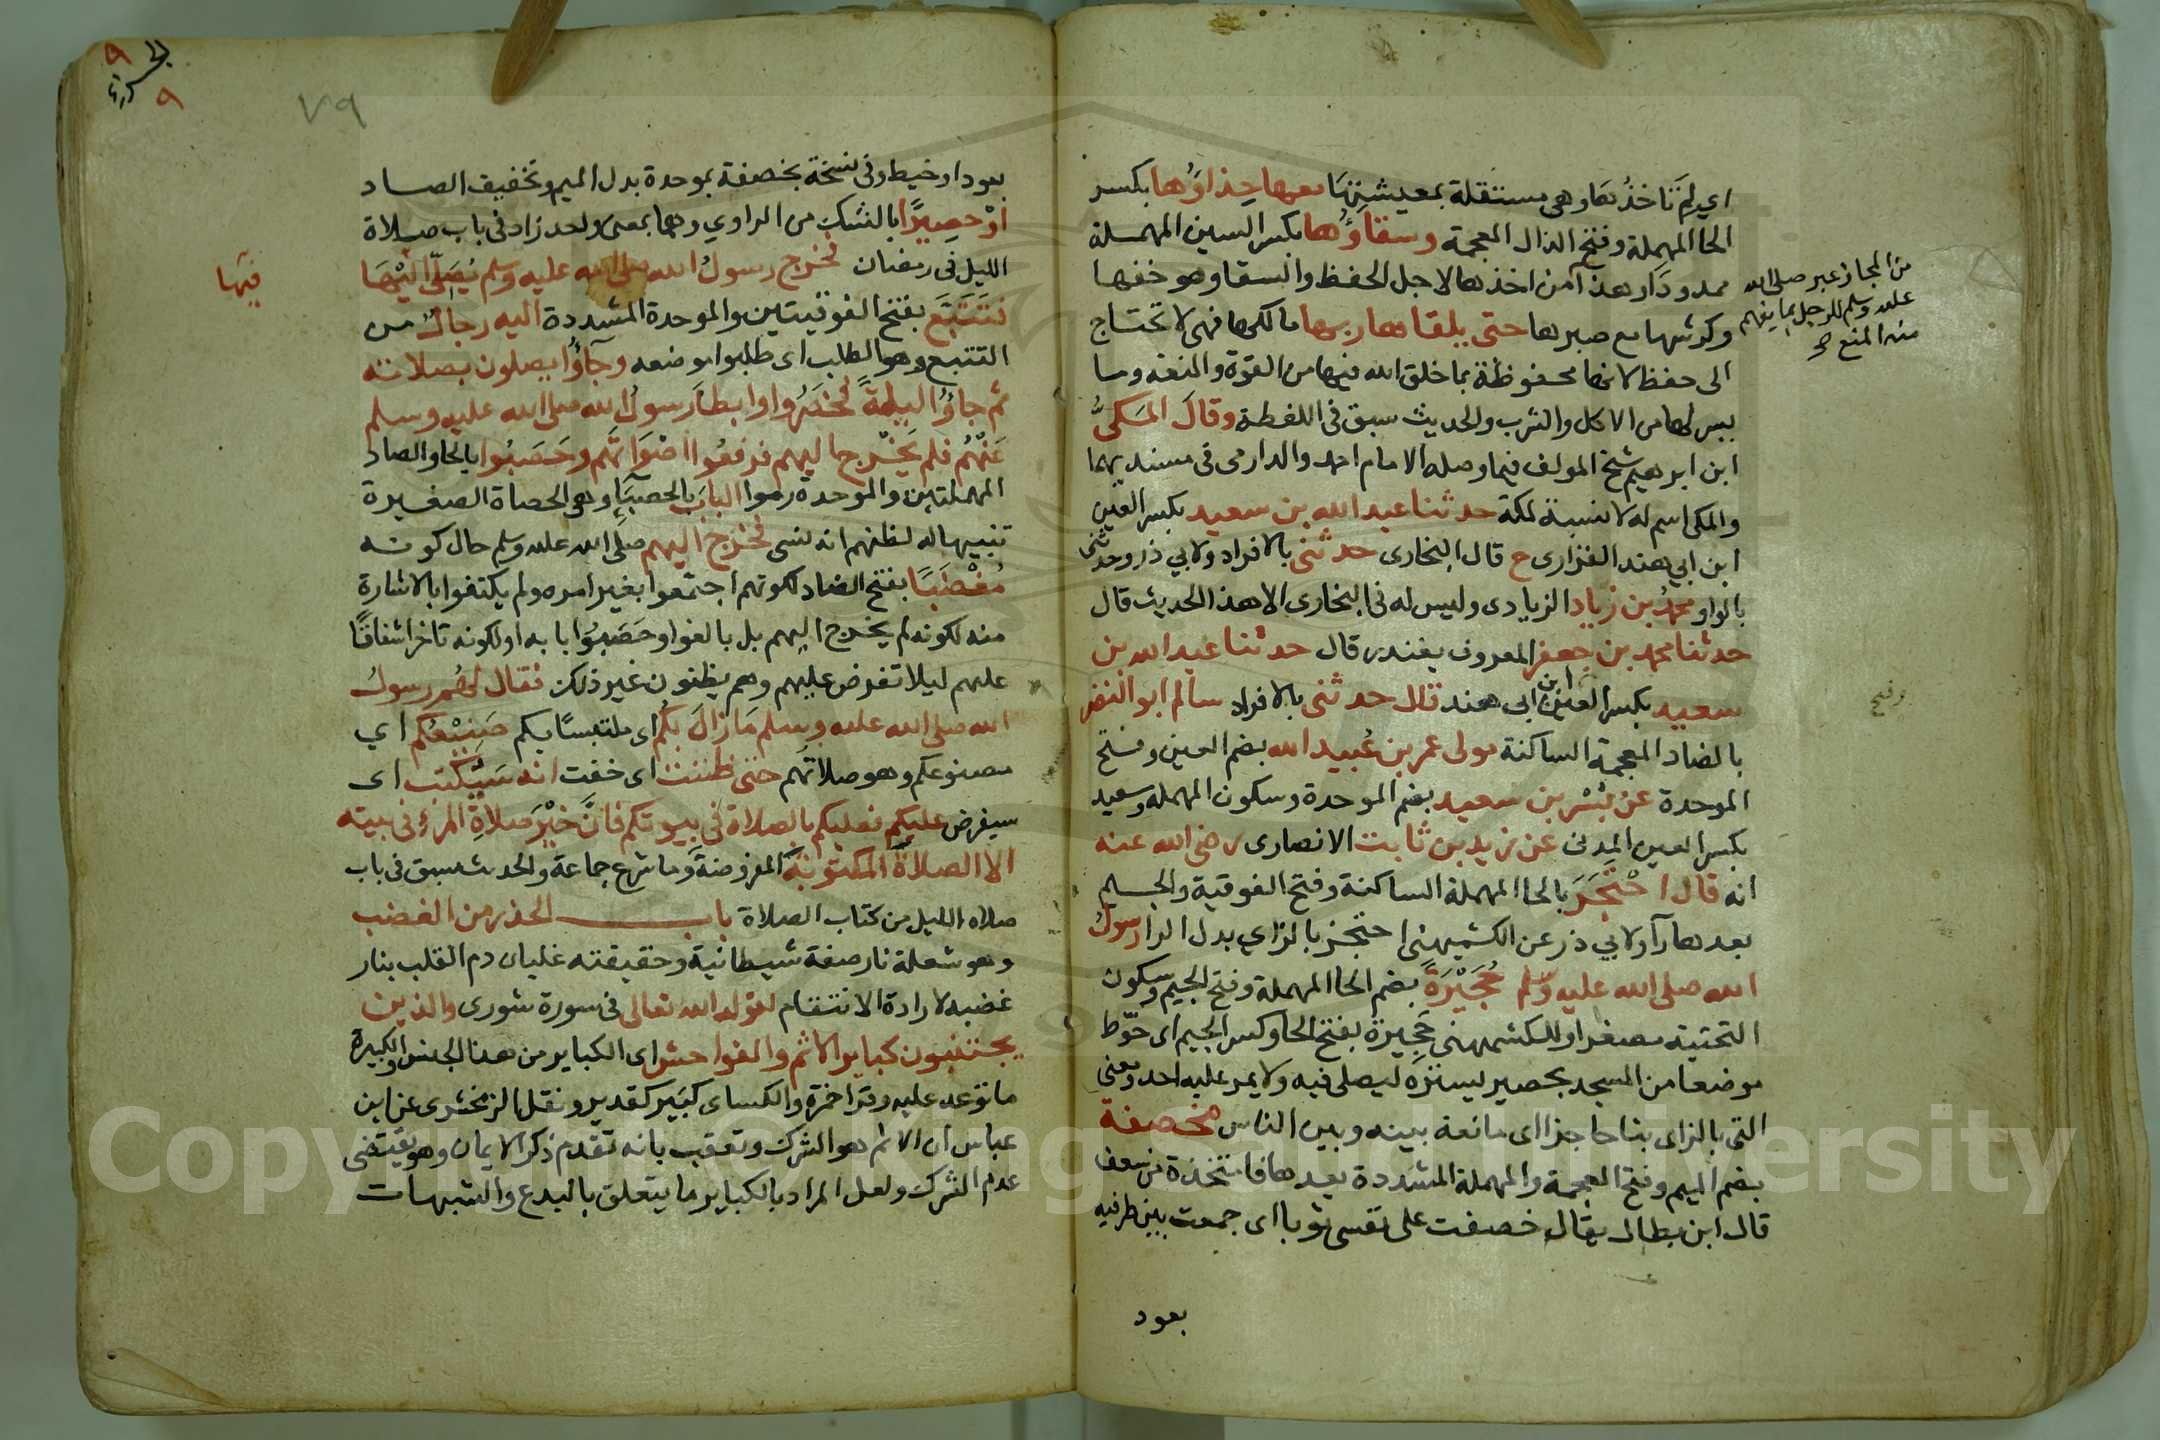 اي لِمَ تاخذُها وهي مستقلة بمعيشتها معها حِذاؤُها بكسر
الحا المهملة وفتح الذال المعجمة وسقاؤُها بكسر السين المهملة
ممدود اد هذا من اخذها لاجل الحفظ والسقا وهو خفها
وكرشها مع صبرها حتى يلقاها ربها مالكها فهى لا تحتاج
الى حفظ لانها محفوظة بما خلق الله فيها من القوة والمنعة وما
يسر لها من الاكل والشرب والحديث سبق فى اللقطة وقالَ المَكىُّ
ابن ابرهيم شيخ المولف فيما وصله الامام احمد والدارمى فى مسنديهما
والمكى اسم له لا نسبة لمكة حدثنا عبد الله بن سعيد بكسر العين
ابن ابي هند الفزارى ح قال البخارى حدثنى بالافراد ولابي ذر وحدثنى
بالواو محمد بن زياد الزيادى وليس له فى البخارى الا هذا الحديث قال
حدثنا محمد بن جعفر المعروف بغندر قال حدثنا عبد الله بن
سعيد بكسر العين ابن ابى هند قال حدثنى بالافراد سالم ابو النضر
بالضاد المعجمة الساكنة مولى عمر بن عُبيد الله بضم العين وفتح
الموحدة عن بُسْر بن سعيد بضم الموحدة وسكون المهملة وسعيد
بكسر العين المدنى عن زيد بن ثابت الانصارى رضى الله عنه
انه قال احْتَجَرَ بالحا المهملة الساكنة وفتح الفوقية والجيم
بعدها رآ ولابي ذر عن الكشميهنى احتجز بالزاي بدل الرا رسولُ
الله صلى الله عليه وسلم حُجَيْرَةً بضم الحا المهملة وفتح الجيم وسكون
التحتية مصغرا وللكشميهنى حَجِيزة بفتح الحا وكسر الجيم اى حوّط
موضعا من المسجد بحصير ليستره ليصلى فيه ولا يمر عليه احد ومعنى
التى بالزاى بنا حاجزا اى مانعة بينه وبين الناس مخصفة
بضم الميم وفتح المعجمة والمهملة المشددة بعدها فا متخذة من سعف
قال ابن بطال يقال خصفت على نفسى ثوبا اى جمعت بين طرفيه
بعود
من المجاز عبر صلى الله
عليه وسلم للرجل بما يفهم
منه المنع
وفتح
٧٩
بعود او خيط وفى نسخة بخصفة بموحدة بدل الميم وتخفيف الصاد
اوْ حصِيرًا بالشك من الراوي وهما بمعنى واحد زاد فى باب صلاة
الليل فى رمضان فخرج رسولُ الله صلى الله عليه وسلم يُصَلّى اليْها
فيها
فتَتَبَّعَ بفتح الفوقيتين والموحدة المشددة اليه رجالٌ من
التتبع وهو الطلب اى طلبوا موضعه وجآؤُا يصلون بصلاته
ثم جاؤُا ليلةً فحَضَرُوا وابطاَ رسولُ الله صلى الله عليه وسلم
عَنْهُم فلم يَخْرج اليهم فرفعُوا اصْوَاتهَم وحَصَبُوا بالحا والصاد
المهملتين والموحدة رموا البابَ بالحصبآءِ وهى الحصاة الصغيرة
تنبيها له لظنهم انه نسى فخرَج اليهم صلى الله عليه وسلم حال كونه
مُغْضَبًا بفتح الضاد لكونهم اجتمعوا بغير امره ولم يكتفوا بالاشارة
منه لكونه لم يخرج اليهم بل بالغوا وحَصَبُوا بابه او لكونه تاخر اشفاقًا
عليهم ليلا تفرض عليهم وهم يظنون غير ذلك فقال لهُم رسولُ
الله صلى الله عليه وسلم مَا زالَ بكُم اى ملتبسًا بكم صَنِيْعُكم اي
مصنوعكم وهو صلاتهم حتى ظننت اى خفت انه سَيُكْتَب اى
سيفرض عليكم فعليكم بالصلاة فى بيوتكم فانَّ خيْرَ صلاةِ المرْءِ فى بيته
الا الصلاةَ المكتوبةَ المفروضةَ وما شرع جماعة والحديث سبق فى باب
صلاه الليل من كتاب الصلاة باب الحذر من الغضب
وهو شعلة نار صفة شيطانية وحقيقته غليان دم القلب بنار
غضبه لارادة الانتقام لقول الله تعالى فى سورة شورى والذين
يجتنبون كباير الاثم والفواحش اى الكباير من هذا الجنس والكبيرة
ما توعد عليه وقرا حمزة والكساى كبَير كقدير ونقل الزمخشرى عن ابن
عباس ان الاثم هو الشرك وتعقب بانه تقدم ذكر الايمان وهو يقتضى
عدم الشرك ولعل المراد بالكباير ما يتعلق بالبدع والشبهات
Copyright © King Saud University